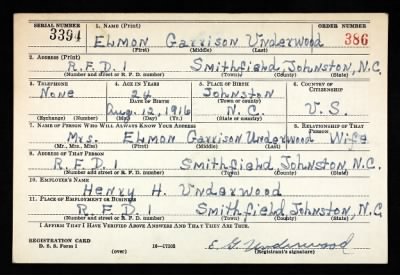 SERIAL NUMBER 1. NAME (Print) ORDER NUMBER
3394 ELMON Garrison Underwood 386
(First) (Middle) (Last)
2. ADDRESS (Print)
R.F.D. 1 Smithfield, Johnston, N.C.
(Number and street or R. F. D. number) (Town) (County) (State)
3. TELEPHONE 4. AGE IN YEARS 5. PLACE OF BIRTH 6. COUNTRY OF CITIZENSHIP
None 24 Johnston
DATE OF BIRTH (Town or county)
Aug. 12, 1916 N.C. U.S.
(Exchange) (Number) (Mo.) (Day) (Yr.) (State or country)
7. NAME OF PERSON WHO WILL ALWAYS KNOW YOUR ADDRESS 8. RELATIONSHIP OF THAT PERSON
Mrs. ELMON Garrison Underwood Wife
(Mr., Mrs., Miss) (First) (Middle) (Last)
9. ADDRESS OF THAT PERSON
R.F.D. 1 Smithfield, Johnston, N.C.
(Number and street or R. F. D. number) (Town) (County) (State)
10. EMPLOYER'S NAME
Henry H. Underwood
11. PLACE OF EMPLOYMENT OR BUSINESS
R.F.D. 1 Smithfield, Johnston, N.C.
(Number and street or R. F. D. number) (Town) (County) (State)
I AFFIRM THAT I HAVE VERIFIED ABOVE ANSWERS AND THAT THEY ARE TRUE.
REGISTRATION CARD
D. S. S. Form 1 (over) E. G. Underwood
(Registrant's signature)